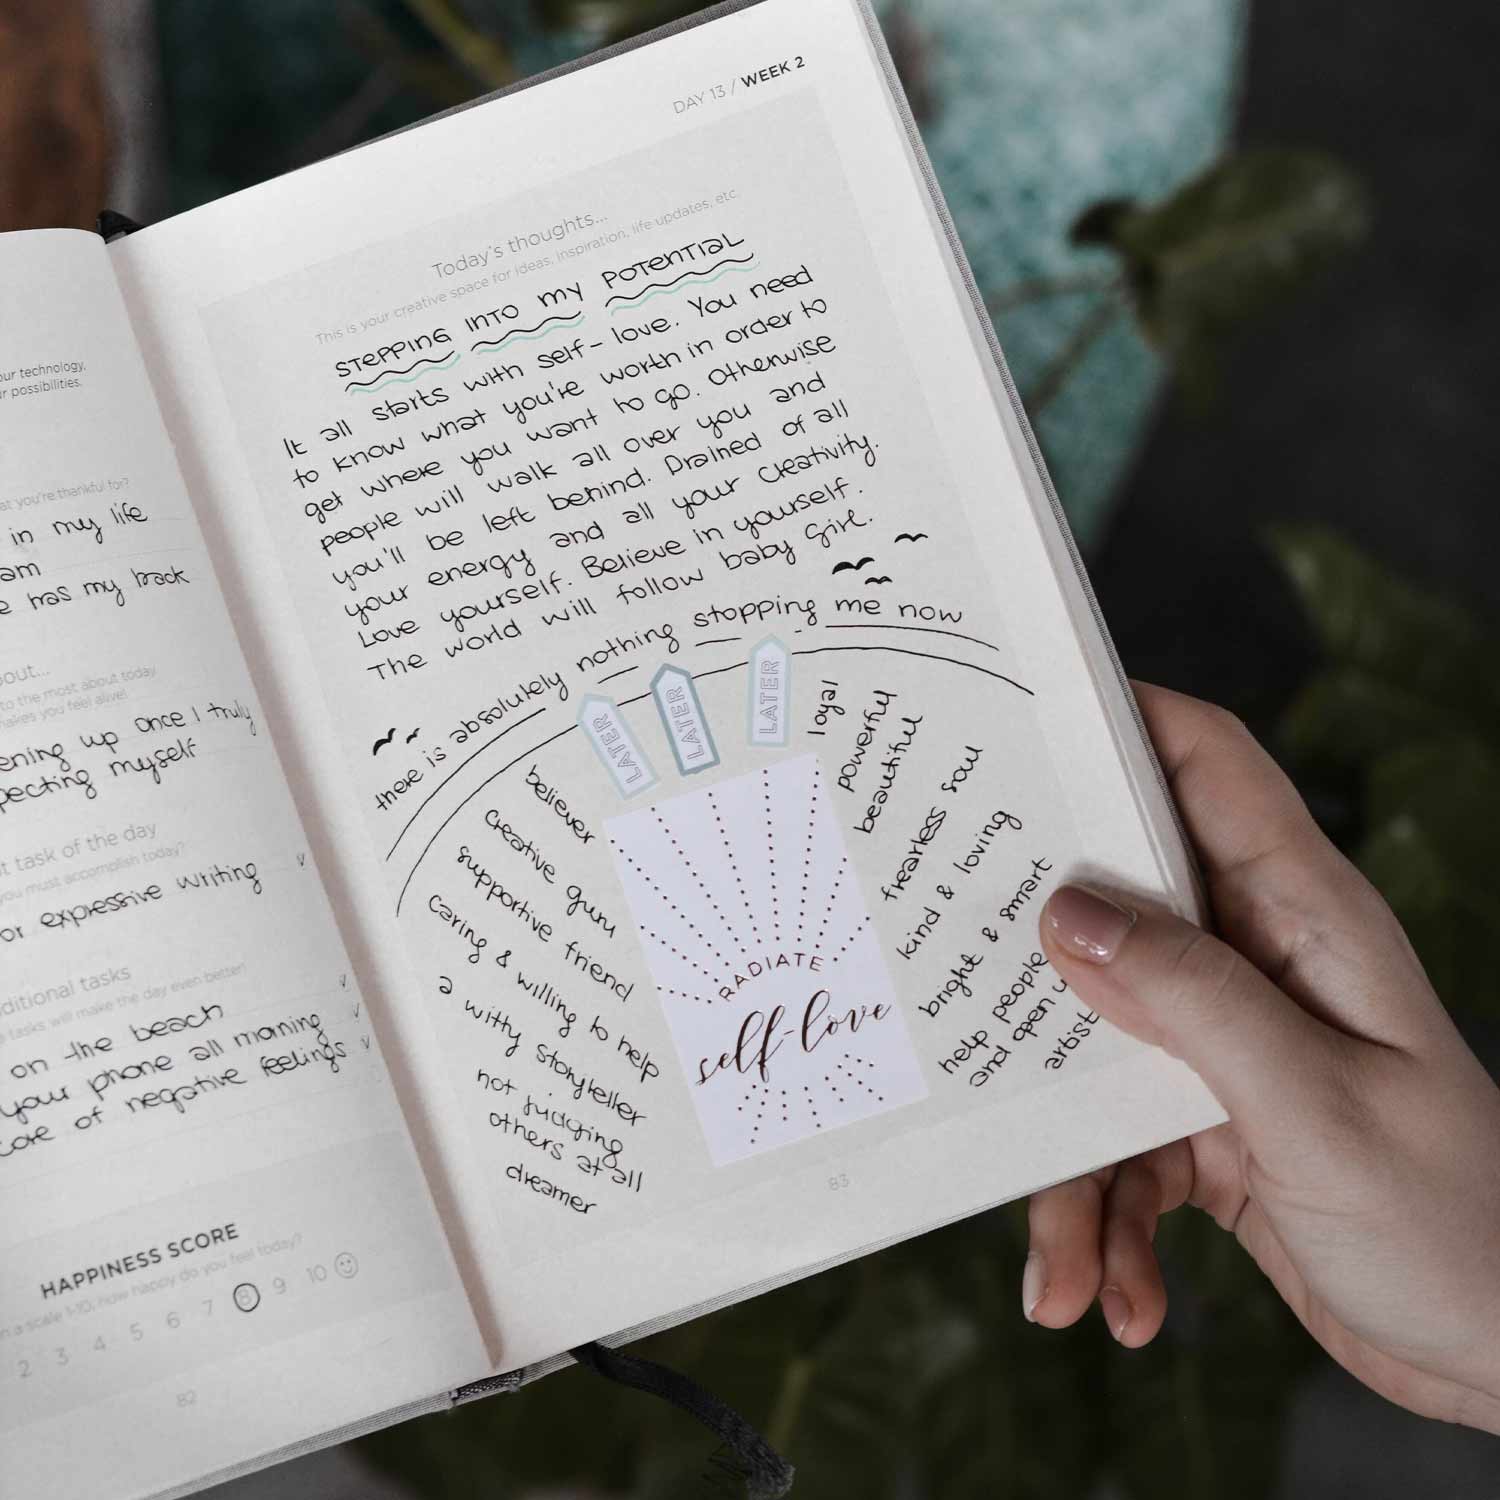 our technology,
r possibilities.
at you're thankful for?
in my life
am
e has my back
out...
to the most about today
makes you feel alive!
ening up once I truly
pecting myself
t task of the day
you must accomplish today?
or expressive writing
ditional tasks
tasks will make the day even better!
on the beach
your phone all morning
care of negative feelings
HAPPINESS SCORE
n a scale 1-10, how happy do you feel today?
2 3 4 5 6 7 8 9 10
82
DAY 13 / WEEK 2
Today's thoughts...
This is your creative space for ideas, inspiration, life updates, etc.
STEPPING INTO MY POTENTIAL
It all starts with self-love. You need
to know what you're worth in order to
get where you want to go. Otherwise
people will walk all over you and
you'll be left behind. Drained of all
your energy and all your creativity.
Love yourself. Believe in yourself.
The world will follow baby girl.
there is absolutely nothing stopping me now
LATER
LATER
LATER
believer
creative guru
supportive friend
caring & willing to help
a witty storyteller
not judging
others at all
dreamer
RADIATE
self-love
loyal
powerful
beautiful
fearless soul
kind & loving
bright & smart
help people
and open u
artist
83